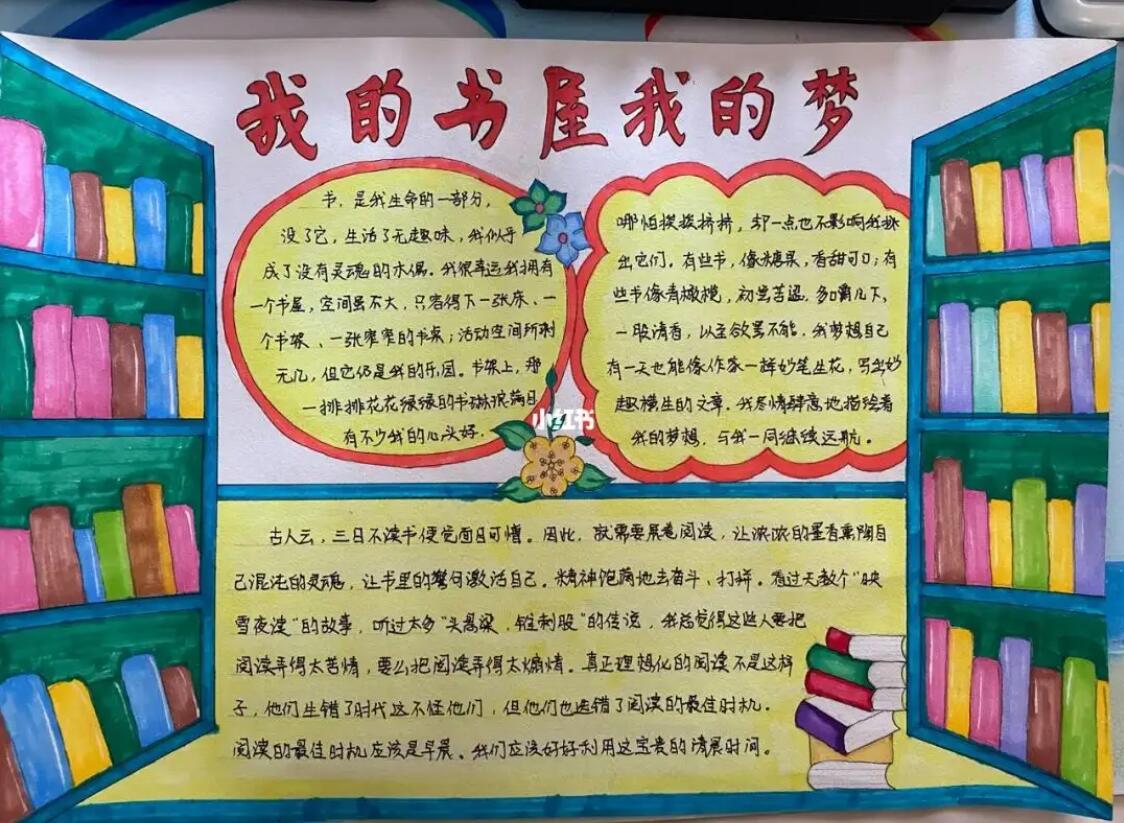 我的书屋我的梦
书，是我生命的一部分，
没了它，生活了无趣味，我似乎
成了没有灵魂的木偶。我很幸运我拥有
一个书屋，空间虽不大，只容得下一张床、一
个书架、一张窄窄的书桌；活动空间所剩
无几，但它仍是我的乐园。书架上，那
一排排花花绿绿的书琳琅满目
有不少我的心头好．
哪怕挨挨挤挤，却一点也不影响我挑
出它们。有些书，像糖果，香甜可口；有
些书像青橄榄，初尝苦涩，多嚼几下，
一股清香，以至欲罢不能，我梦想自己
有一天也能像作家一样妙笔生花，写出妙
趣横生的文章。我尽情肆意地描绘着
我的梦想，与我一同继续远航。
小红书
古人云，三日不读书便觉面目可憎。因此，就需要展卷阅读，让浓浓的墨香熏陶自
己混沌的灵魂，让书里的警句激活自己。精神饱满地去奋斗、打拼。看过无数个“映
雪夜读”的故事，听过太多“头悬梁，锥刺股”的传说，我总觉得这些人要把
阅读弄得太苦情，要么把阅读弄得太煽情。真正理想化的阅读不是这样
子，他们生错了时代这不怪他们，但他们也选错了阅读的最佳时机．
阅读的最佳时机应该是早晨。我们应该好好利用这宝贵的清晨时间。